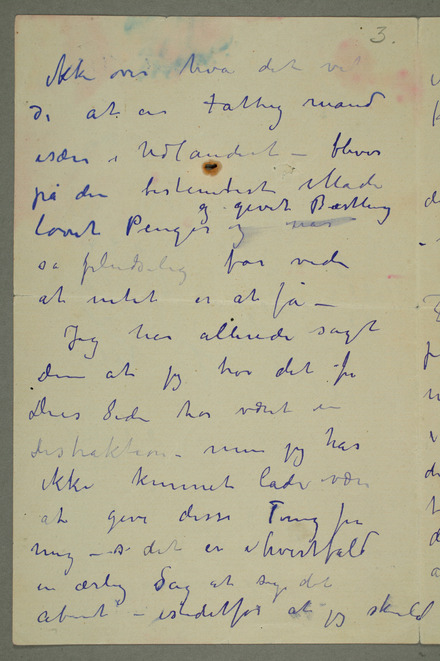 3.
ikke over hva det vil
si at en fattig mand
især i Udlandet – bliver
på den bestemteste Måde
og givet Bestilling
lovet Penger og
så pludselig får vide
at intet er at få –
Jeg har allerede sagt
Dem at jeg tror det fra
Deres Side har været en
distraktion – men jeg har
ikke kunnet lade være
at give disse Ting fra
mig – så det er ihvertfald
en ærlig Sag at sige det
åbent – istedetfor at jeg skuld